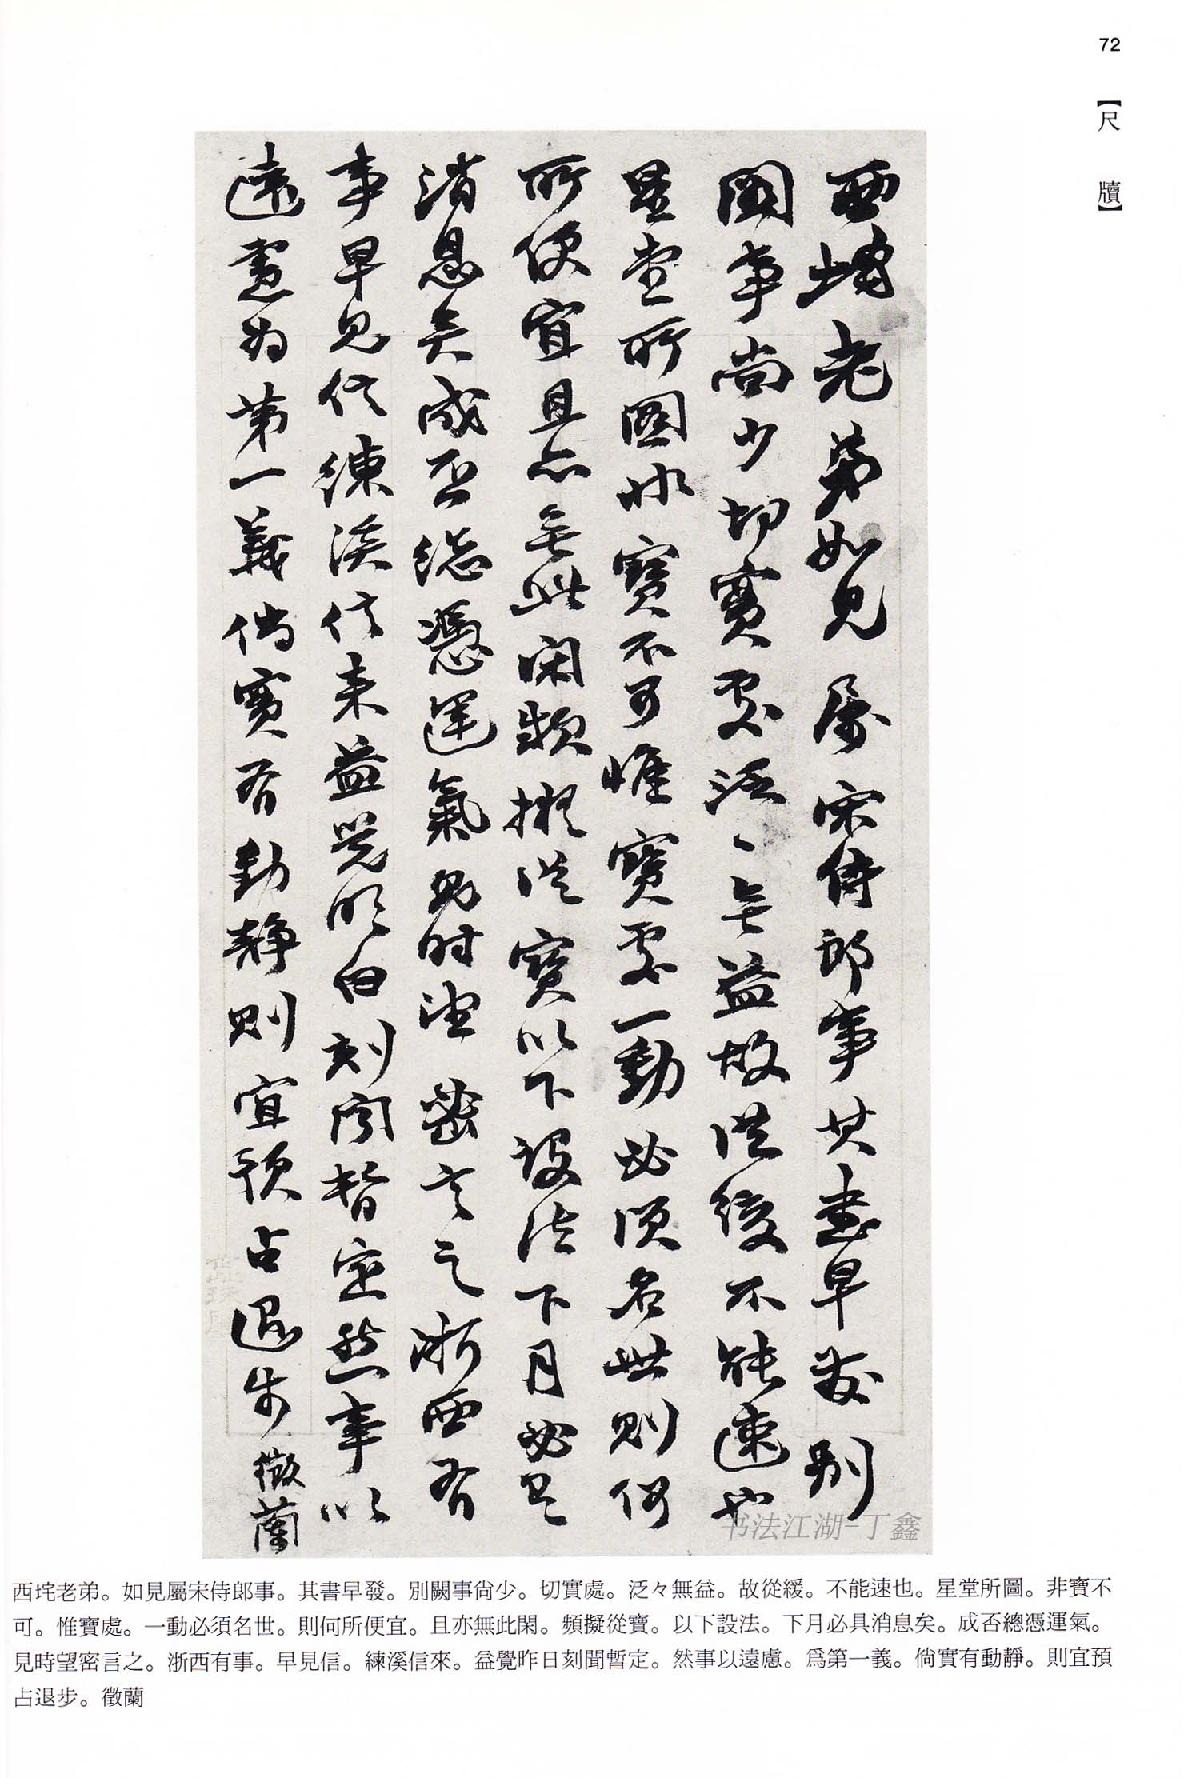 72
【尺牘】
西垞老弟如見屬宋侍郎事其書早發別
闕事尚少切實處泛々無益故從緩不能速也
星堂所圖非寶不可惟寶處一動必須名世則何
所便宜且亦無此閑頻擬從寶以下設法下月必具
消息矣成否總憑運氣見時望密言之浙西有
事早見信練溪信來益覺昨日刻聞暫定然事以
遠慮為第一義倘實有動靜則宜預占退步徵蘭
书法江湖-丁鑫
西垞老弟。如見屬宋侍郎事。其書早發。別闕事尙少。切實處。泛々無益。故從緩。不能速也。星堂所圖。非寶不
可。惟寶處。一動必須名世。則何所便宜。且亦無此閑。頻擬從寶。以下設法。下月必具消息矣。成否總憑運氣。
見時望密言之。浙西有事。早見信。練溪信來。益覺昨日刻聞暫定。然事以遠慮。爲第一義。倘實有動靜。則宜預
占退步。徵蘭